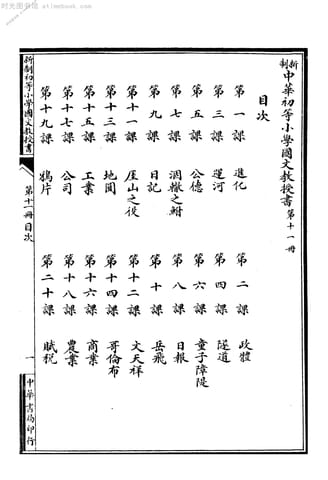 时光图书馆 atimebook.com
新制中華初等小學國文教授書第十一冊
目次
第一課 進化 第二課 政體
第三課 運河 第四課 隧道
第五課 公德 第六課 童子障隄
第七課 涸轍之鮒 第八課 日報
第九課 日記 第十課 岳飛
第十一課 厓山之役 第十二課 文天祥
第十三課 地圓 第十四課 哥倫布
第十五課 工業 第十六課 商業
第十七課 公司 第十八課 農業
第十九課 鴉片 第二十課 賦稅
新制初等小學國文教授書 第十一冊目次 一 中華書局印行